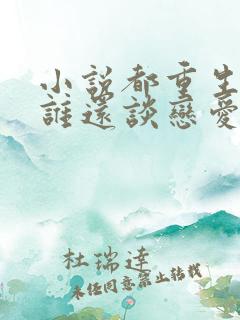 小說都重生
誰還談戀愛
杜瑞達
未经同意禁止转载